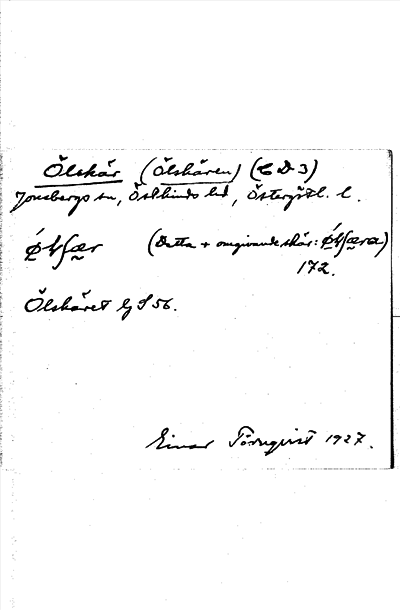 Ölskär (Ölskären) (C D 3)
Jonsbergs sn, Östkinds hd, Östergötl. l.
(Detta + omgivande skär:
172.
Ölskäret Gj S 56.
Einar Törnqvist 1927.